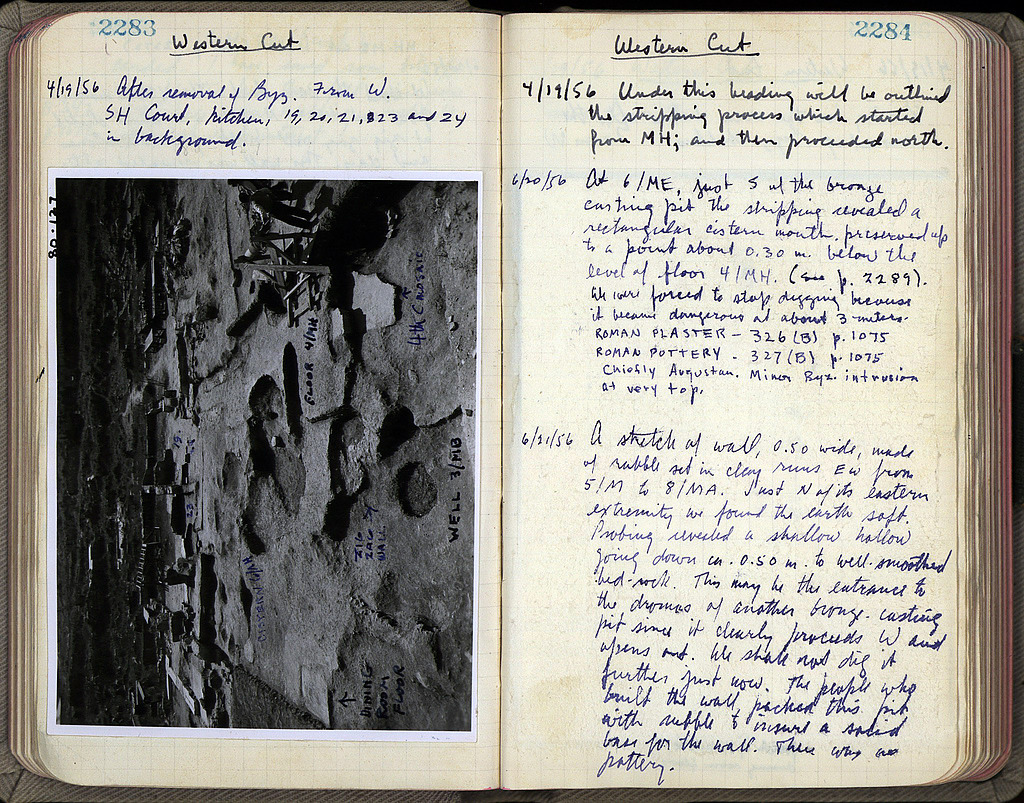 2283
Western Cut
4/19/56 After removal of Byz. From W.
SH Court, kitchen, 19, 20, 21, 23 and 24
in background.
80-127
4th C MOSAIC
FLOOR 4/MH
WELL 3/MB
ZIG
ZAG
WALL
19
23
CISTERN
↑
DINING
ROOM
FLOOR
2284
Western Cut
4/19/56 Under this heading will be outlined
the stripping process which started
from MH; and then proceeded north.
6/20/56 At 6/ME, just S of the bronze
casting pit the stripping revealed a
rectangular cistern mouth, preserved up
to a point about 0.30 m. below the
level of floor 4/MH. (See p. 2289).
We were forced to stop digging because
it became dangerous at about 3 meters.
ROMAN PLASTER - 326 (B) p. 1075
ROMAN POTTERY - 327 (B) p. 1075
Chiefly Augustan. Minor Byz. intrusion
at very top.
6/21/56 A stretch of wall, 0.50 wide, made
of rubble set in clay runs EW from
5/M to 8/MA. Just N of its eastern
extremity we found the earth soft.
Probing revealed a shallow hollow
going down ca. 0.50 m. to well-smoothed
bed-rock. This may be the entrance to
the dromos of another bronze-casting
pit since it clearly proceeds W and
opens out. We shall not dig it
further just now. The people who
built the wall, packed this pit
with rubble to insure a solid
base for the wall. There was no
pottery.